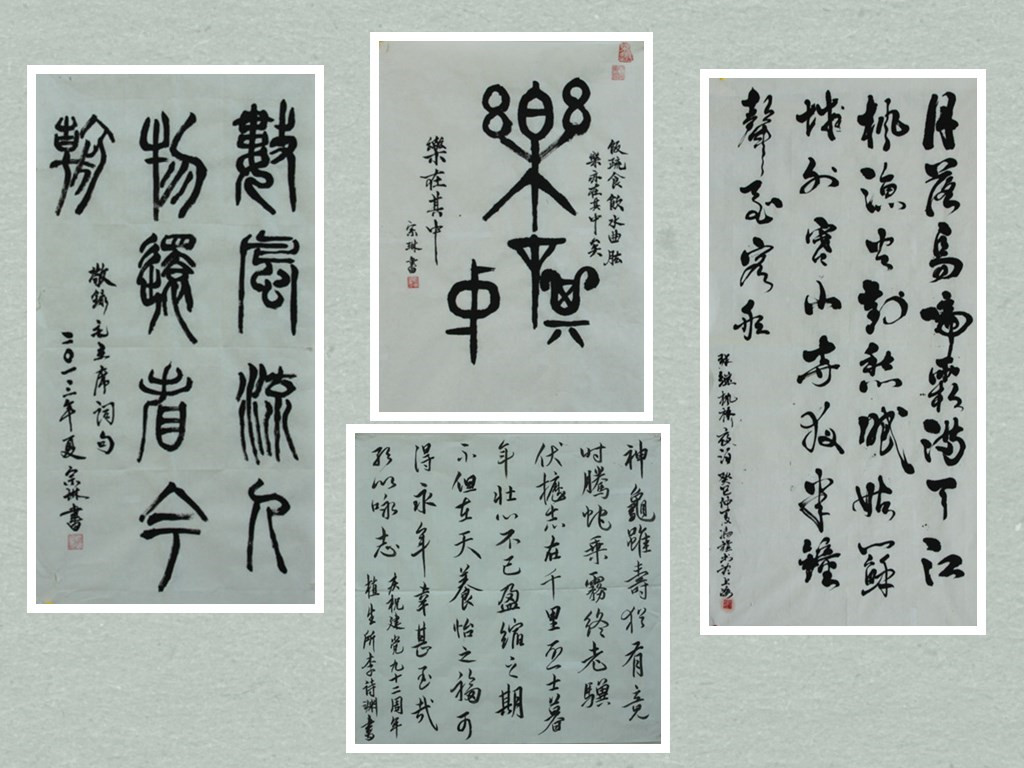 數風流人
物還看今
朝
敬錄毛主席詞句
二〇一三年夏宗琳書
飯疏食飲水曲肱
樂亦在其中矣
樂在其中
樂在其中
宗琳書
月落烏啼霜滿天江
楓漁火對愁眠姑蘇
城外寒山寺夜半鐘
聲到客船
張繼楓橋夜泊 癸巳仲夏 書於上海
神龜雖壽猶有竟
时騰蛇乘霧終老驥
伏櫪志在千里烈士暮
年壮心不已盈縮之期
不但在天養怡之福可
得永年幸甚至哉
歌以咏志
庆祝建党九十二周年
植生所李诗渊書